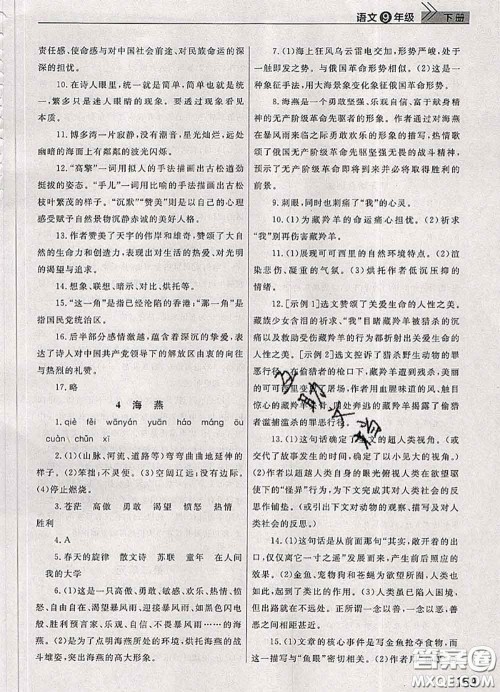 语文9年级 下册
责任感、使命感与对中国社会前途、对民族命运的深
深的担忧。
10. 在诗人眼里,统一就是简单,简单也就是统
一,繁多只是迷人眼睛的现象。要透过现象看见本
质。
11. 博多湾一片寂静,没有潮音,星光灿烂,远处
幽暗的海面上有粼粼的波光闪烁。
12. “高擎”一词用拟人的手法描画出古松道劲
挺拔的姿态。“手儿”一词用比喻的手法描画出古松
枝叶繁茂的样子。“沉默”“赞美”表现了作者的心灵
感受赋予自然景物沉静赤诚的美好人格。
13. 作者赞美了天宇的伟岸和雄奇,赞美了大自
然的生命力和创造力,表现出对生活的热爱、对光明
的渴望。
14. 想象、联想、暗示、烘托等。
15. “这一角”是指已经沦陷的香港;“那一角”是
指国民党统治区。
16. 后半部分感情激越,蕴含着深沉的挚爱,表
达了诗人对中国共产党领导下的解放区由衷的向往
与热烈的礼赞。
17. 略
4 海燕
1. qiè fěi wānyán yuán háo mángáo ōu
cuàn chǔn xī
2. (1)(山脉、河流、道路等)弯弯曲曲地延伸的
样子。(2)笨拙;不灵便。(3)空阔辽远;没有边际。
(4)停止燃烧。
3. 苍茫 高傲 勇敢 渴望 愤怒 热情
胜利
4. A
5. 春天的旋律 散文诗 苏联 童年 在人间
我的大学
6. (1)这是一只高傲、勇敢、敏感、欢乐、热情、愤
怒、自信、乐观、渴望暴风雨、迎接暴风雨、欢呼暴风
雨的海燕。(2)描写海燕所处的环境,烘托海燕的战
斗雄姿,突出海燕的高大形象。
7. (1)海上狂风乌云雷电交加,形势严峻,处于
一触即发之势。与俄国革命形势相似。(2)这是一
种象征手法,用大海景象变化象征俄国革命形势。
8. 海燕是一个勇敢坚强、乐观自信、富于献身精
神的无产阶级革命先驱者的形象。作者通过对海燕
在暴风雨来临之际勇敢欢乐的形象的描写,热情歌
颂了俄国无产阶级革命先驱坚强无畏的战斗精神,
预言了无产阶级革命即将到来并必将取得胜利的前
景。
9. 刺眼,刺向了“我”的心灵。
10. (1)为藏羚羊的命运痛心担忧。(2)祈求
“我”别再伤害藏羚羊。
11. (1)展现可可西里的自然环境特点。(2)渲
染悲伤、凝重的气氛。(3)烘托作者低沉压抑的
情绪。
12. [示例1]选文赞颂了关爱生命的人性之美。
藏族少女含泪的祈求、“我”目睹藏羚羊被猎杀的沉痛
以及救助受伤藏羚羊的行为都体现了关爱生命的人
性之美。[示例2]选文控诉了猎杀野生动物的罪恶
行径。大量藏羚羊遭到残杀,美丽的
可可西里变 飘着血腥味道的
风,就
猎滥捕滥杀的罪恶行径。
13. (1)这句话确定了文章的超人类视角。(或
交代了故事发生的时间,体现了以小见大的视角。)
(2)作者以超越人类自身的眼光俯视被人类观赏环
境下的“怪异”行为,为下文完成对人类社会的反思
作铺垫。(3)引发读者兴趣,引起下文,为下文对人
类社会的反思作准备。
14. (1)这句话是从前面那句“其实,敢吃敢闹,
何尝不偏离它一寸之遥”发展来的,意思相近,表达
了类比的作用。(2)金鱼、宠物狗和苍蝇与我们共有
的特点是欲望所圈,与人类形成类比关系,引出了作
者对人类社会的反思。
15. (1)文章的核心事件是写金鱼抢夺食物,而
159
答案圈
MXQE.COM